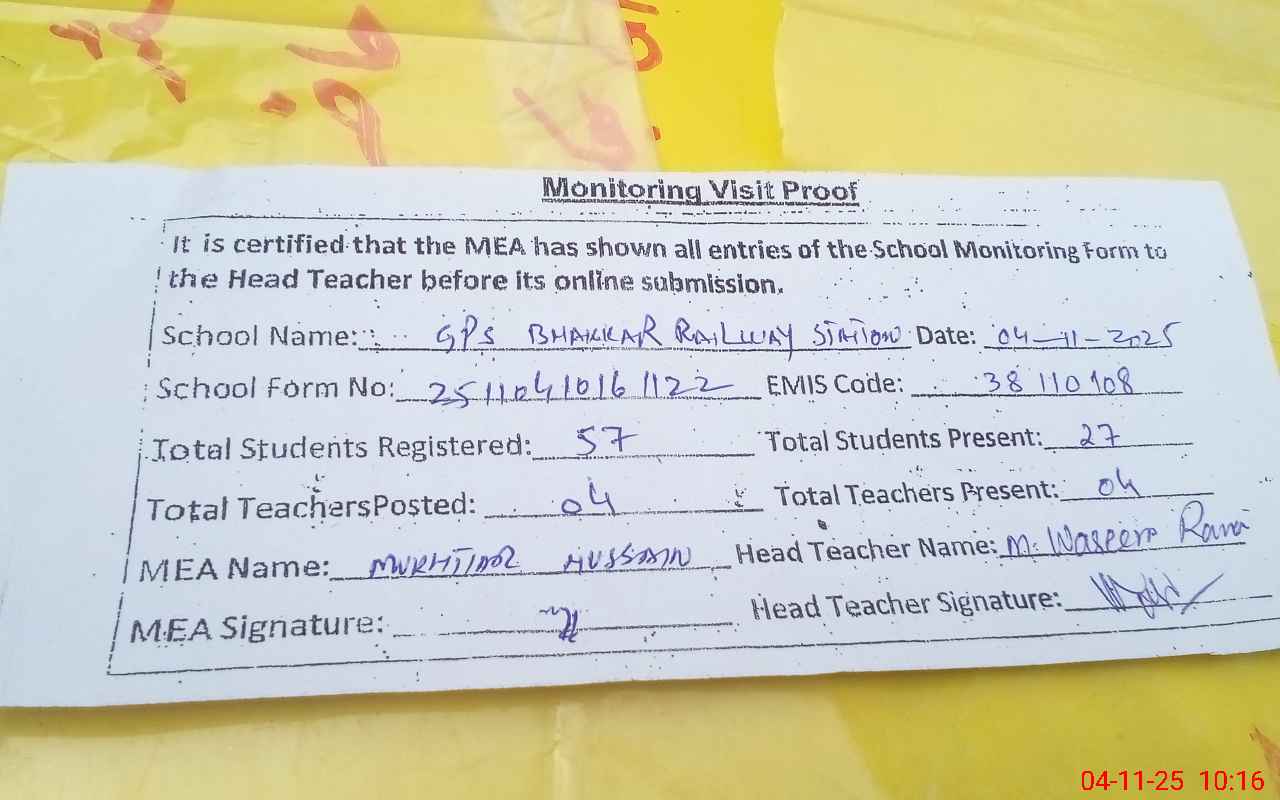 Monitoring Visit Proof
It is certified that the MEA has shown all entries of the School Monitoring Form to
the Head Teacher before its online submission.
School Name: GPS BHAKKAR RAILWAY STATION Date: 04-11-2025
School Form No: 25110410161122 EMIS Code: 38110108
Total Students Registered: 57 Total Students Present: 27
Total TeachersPosted: 04 Total Teachers Present: 04
MEA Name: MUKHTIAR HUSSAIN Head Teacher Name: M. Waseem Rana
MEA Signature: Head Teacher Signature:
04-11-25 10:16